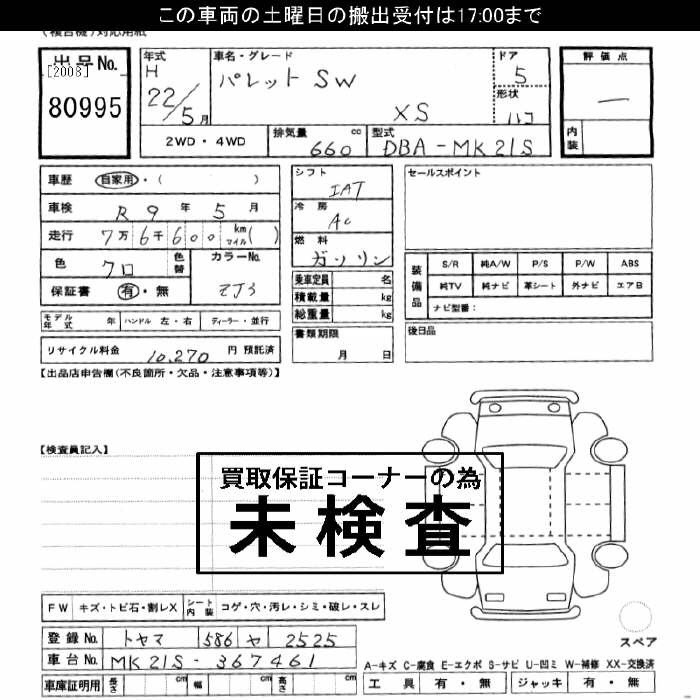 この車両の土曜日の搬出受付は17:00まで
(複合機)対応用紙
出品No. [2008] 80995
年式 H 22/5月
車名・グレード パレットSW XS
ドア 5
形状 ハコ
評価点 —
内装
2WD・4WD
排気量 660 cc
型式 DBA-MK21S
車歴 自家用・( )
車検 R 9年 5月
走行 7万6千600 km マイル( )
色 クロ 色替
カラーNo. ZJ3
保証書 有・無
モデル年式 年 ハンドル 左・右 ディーラー・並行
リサイクル料金 10,270 円 預託済
シフト IAT
冷房 AC
燃料 ガソリン
乗車定員 名
積載量 kg
総重量 kg
書類期限 月 日
セールスポイント
装備品 S/R 純A/W P/S P/W ABS
純TV 純ナビ 革シート 外ナビ エアB
ナビ型番:
後日品
【出品店申告欄(不良箇所・欠品・注意事項等)】
【検査員記入】
買取保証コーナーの為
未検査
FW キズ・トビ石・割レX シート内装 コゲ・穴・汚レ・シミ・破レ・スレ
スペア
登録No. トヤマ 586 ヤ 2525
車台No. MK21S-367461
車庫証明用 長さ cm 幅 cm 高さ cm
A-キズ C-腐食 E-エクボ S-サビ U-凹ミ W-補修 XX-交換済
工具 有・無 ジャッキ 有・無